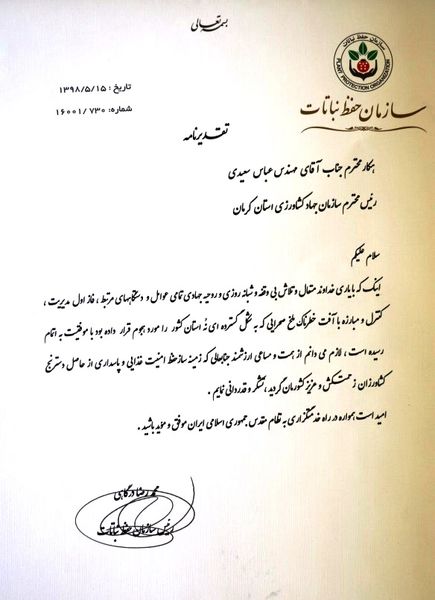 بسمه تعالی
سازمان حفظ نباتات
PLANT PROTECTION ORGANIZATION
سازمان حفظ نباتات
تاریخ : ۱۳۹۸/۵/۱۵
شماره: ۱۶۰۰۱/۷۳۰
تقدیرنامه
همکار محترم جناب آقای مهندس عباس سعیدی
رئیس محترم سازمان جهاد کشاورزی استان کرمان
سلام علیکم
اینک که با یاری خداوند متعال و تلاش بی وقفه و شبانه روزی و روحیه جهادی تمامی عوامل و دستگاههای مرتبط ، فاز اول مدیریت ،
کنترل و مبارزه با آفت خطرناک ملخ صحرایی که به شکل گسترده ای نُه استان کشور را مورد هجوم قرار داده بود با موفقیت به اتمام
رسیده است ، لازم می دانم از همت و مساعی ارزشمند جنابعالی که زمینه ساز حفظ امنیت غذایی و پاسداری از حاصل دسترنج
کشاورزان زحمتکش و عزیز کشورمان گردید ، تشکر و قدردانی نمایم .
امید است همواره در راه خدمتگزاری به نظام مقدس جمهوری اسلامی ایران موفق و مؤید باشید .
محمد رضا درگاهی
رئیس سازمان حفظ نباتات